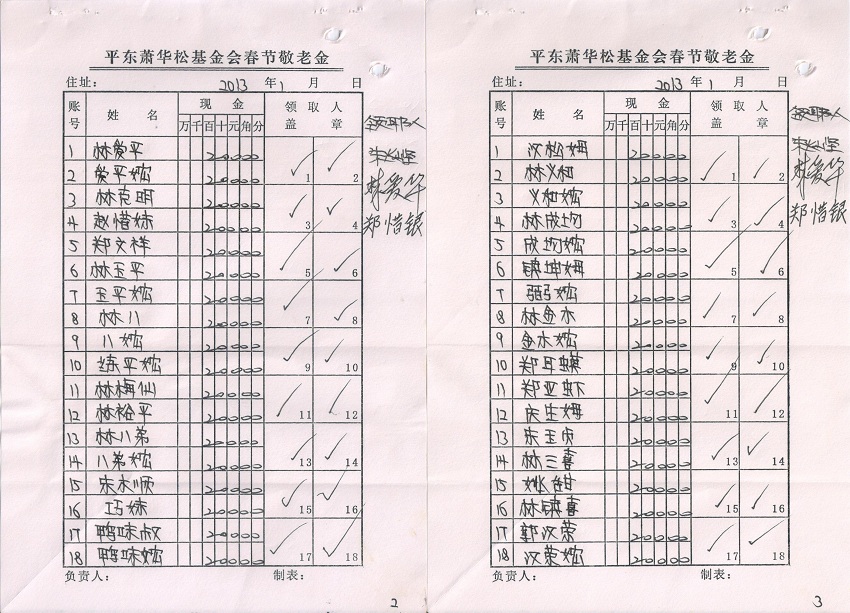 平东萧华松基金会春节敬老金
住址： 2013 年 1 月 日
账号 姓 名 现 金 领 取 人 盖 章
万 千 百 十 元 角 分
1 林爱平 20000 1
2 爱平 20000 2
3 林克明 20000 3
4 赵惜 20000 4
5 郑文祥 20000 5
6 林玉平 20000 6
7 玉平 20000 7
8 林八 20000 8
9 八 20000 9
10 练平 20000 10
11 林梅仙 20000 11
12 林裕平 20000 12
13 林八弟 20000 13
14 八弟 20000 14
15 20000 15
16 巧 20000 16
17 鸭味叔 20000 17
18 鸭味 20000 18
负责人： 制表：
2
林爱华
郑惜银
平东萧华松基金会春节敬老金
住址： 2013 年 1 月 日
账号 姓 名 现 金 领 取 人 盖 章
万 千 百 十 元 角 分
1 汉松姆 20000 1
2 林义和 20000 2
3 义和 20000 3
4 林成均 20000 4
5 成均 20000 5
6 镇坤姆 20000 6
7 20000 7
8 林金水 20000 8
9 金水 20000 9
10 郑 20000 10
11 郑亚虾 20000 11
12 庆生姆 20000 12
13 玉贞 20000 13
14 林三喜 20000 14
15 姚 20000 15
16 林镇喜 20000 16
17 郭汉荣 20000 17
18 汉荣 20000 18
负责人： 制表：
3
林爱华
郑惜银